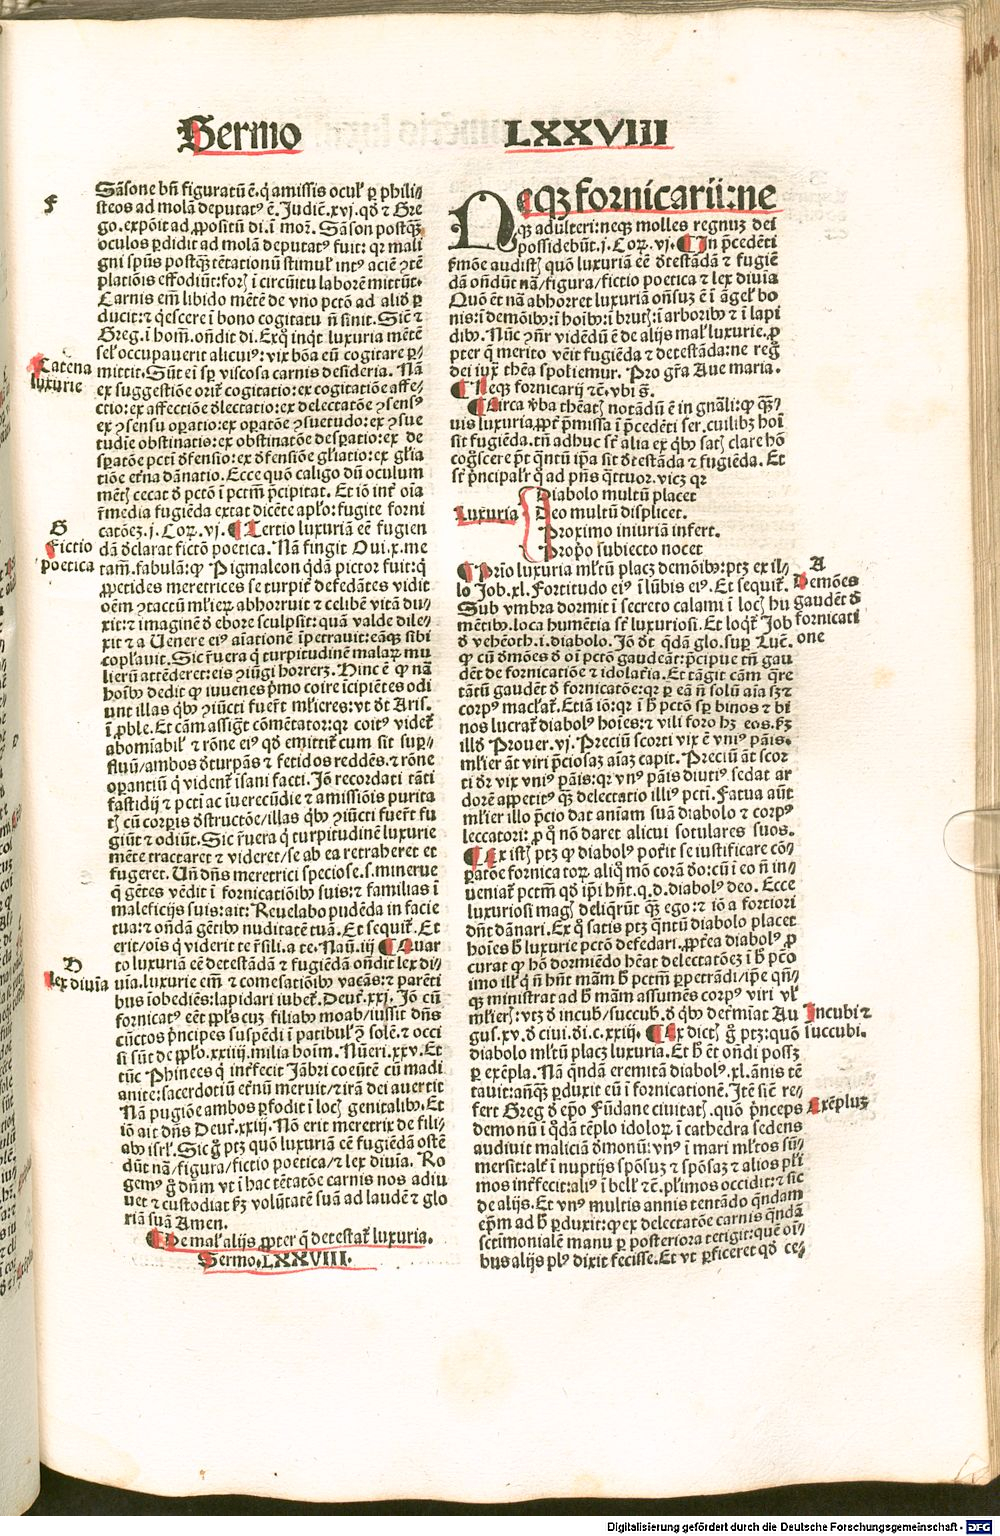 Sermo LXXVIII
F
Sāsone bn̄ figuratū ē. q̇ amissis ocul' ꝑ phili⸗
steos ad molā deputatꝰ ē. Judiē.xvj. qd̓ ⁊ Gre
go. expōit ad ꝓpositū di. i mor̄. Sāson postq̄ꝫ
oculos ꝑdidit ad molā deputatꝰ fuit: qꝛ mali
gni spūs postq̄ꝫ tētationū stimul' intꝰ aciē ꝯtē
platiōis effodiūt: forꝭ i circūitu laborē mittūt.
Carnis em̄ libido mētē de vno pctō ad aliđ ꝑ
ducit: ⁊ q̇escere i bono cogitatu n̄ sinit. Sic ⁊
Greg. i hom̄. ondit di. Exq̇ inq̇t luxuria mētē
sel' occupauerit alicuiꝰ: vix bōa eū cogitare ꝑ⸗
Catena
luxurie
mittit. Sūt ei sꝑ viscosa carnis desideria. Nā
ex suggestiōe orit̄ cogitatio: ex cogitatiōe affe⸗
ctio: ex affectiōe d̓lectatio: ex delectatōe ꝯsensꝰ
ex ꝯsensu oꝑatio: ex oꝑatōe ꝯsuetudo: ex ꝯsue
tudie obstinatio: ex obstinatōe desꝑatio: ex de
sꝑatōe pcti d̓fensio: ex d̓fensiōe gl'iatio: ex gl'ia
tiōe et̓na dānatio. Ecce quō caligo dū oculum
mētꝭ cecat d̓ pctō i pctm̄ p̄cipitat. Et iō int̓ oīa
īmedia fugiēda extat dicēte apl'o: fugite forni
catōeꝫ. j. Coꝝ. vj. ¶ Tertio luxuriā eē fugien
G
Fictio
poetica
dā d̓clarat fictō poetica. Nā fingit Oui. x. me
tam̄. fabulā: ꝙ Pigmaleon q̇dā pictor fuit: q̇
ꝓpetides meretrices se turpit̓ defedātes vidit
oēm ꝯtactū ml'ieꝝ abhorruit ⁊ celibē vitā du⸗
xit: ⁊ imaginē d̓ ebore sculpsit: quā valde dile⸗
xit ⁊ a Uenere eiꝰ aīationē īpetrauit: eāꝗꝫ sibi
copl'auit. Sic r̓uera q̇ turpitudinē malaꝝ mu
lierū attēderet: eis ꝯiūgi horreꝫ. Hinc ē ꝙ nā
hoībꝰ dedit ꝙ iuuenes p̄mo coire īcipiētes odi
unt illas q̇bꝰ ꝯiūcti fuer̄t ml'ieres: vt d̓t Aris.
i ꝓble. Et cām assigt̓ cōmētator: qꝛ coitꝰ videt̓
abomīabil' ⁊ rōne eiꝰ qd̓ emittit̓ cum sit suꝑ⸗
fluū/ambos d̓turpās ⁊ fetidos reddēs. ⁊ rōne
oꝑantiū q̇ vident̓ isani facti. Jō recordati tāti
fastidij ⁊ pcti ac īuerecūdie ⁊ amissiōis purita
tꝭ cū corꝑis d̓structōe/illas q̇bꝰ ꝯiūcti fuer̄t fu
giūt ⁊ odiūt. Sic r̓uera q̇ turpitudinē luxurie
mēte tractaret ⁊ videret/se ab ea retraheret et
fugeret. Un̄ dn̄s meretrici speciose. s. minerue
q̇ gētes vēdit i fornicatiōibꝰ suis: ⁊ familias i
maleficijs suis: ait: Reuelabo pudēda in facie
tua: ⁊ ondā gētibꝰ nuditatē tuā. Et sequit̓. Et
erit/oīs q̇ viderit te r̄sili. a te. Naū. iij ¶ Quar
to luxuriā eē detestādā ⁊ fugiēdā ondit lex di⸗
D
lex diuīa
uīa. luxurie em̄ ⁊ comesatiōibꝰ vacās: ⁊ parēti
bus īobediēs: lapidari iubet̓. Deut̓. xxj. Jō cū
fornicatꝰ eēt ppl's cuꝫ filiabꝰ moab/iussit dn̄s
cūctos p̄ncipes suspēdi i patibul' ꝯ solē. ⁊ occi
si sūt de ppl'o. xxiiij. milia hoīm. Nūeri. xxv. Et
tūc Phinees q̇ int̓fecit Jābri coeūtē cū madi
anite: sacerdotiū et̓nū meruit/⁊ irā dei auertit
Nā pugiōe ambos ꝑfodit i locꝭ genitalibꝰ. Et
iō ait dn̄s Deut̓. xxiij. Nō erit meretrix de fili⸗
abꝰ isrl'. Sic g̊ ptꝫ quō luxuriā eē fugiēdā ostē
dūt nā/figura/fictio poetica/⁊ lex diuīa. Ro
gemꝰ g̊ dn̄m vt i hac tētatōe carnis nos adiu
uet ⁊ custodiat ꝑꝫ volūtatē suā ad laudē ⁊ glo
riā suā Amen.
¶ De mal' alijs ꝓpter q̇ detestat̓ luxuria.
Sermo. LXXVIII.
Neqꝫ fornicarii: ne
qꝫ adulteri: neqꝫ molles regnuꝫ dei
possidebūt. j. Coꝝ. vj. ¶ In p̄cedēti
s̓mōe audistꝭ quō luxuriā eē d̓testādā ⁊ fugiē
dā ondūt nā/figura/fictio poetica ⁊ lex diuīa
Quō et̄ nā abhorret luxuriā onsuꝫ ē i āgel' bo
nis: i demōibꝰ: i hoībꝰ: i brutꝭ: i arboribꝰ ⁊ i lapi
dibꝰ. Nūc ꝯn̄r vidēdū ē de alijs mal' luxurie. ꝓ
pter q̇ merito vēit fugiēda ⁊ detestāda: ne reg̊
dei iuxͭ thēa spoliemur. Pro gr̄a Aue maria.
¶ Neqꝫ fornicarij ⁊c. vbi s̄.
¶ Circa v̓ba thēatꝭ notādū ē in gn̄ali: ꝙ q̄ꝫ⸗
uis luxuria, ꝓut p̄missa i p̄cedēti ser. cuilibꝫ hoī
sit fugiēda. tn̄ adhuc st̓ alia ex q̇bꝰ satꝭ clare hō
cog̊scere p̄t q̇ntū ip̄a sit d̓testāda ⁊ fugiēda. Et
st̓ p̄ncipalr̓ q̇ ad pn̄s q̇ttuor. vicꝫ qꝛ
Luxuria
Diabolo multū placet
Deo multū displicet.
Proximo iniuriā infert.
Prop̓o subiecto nocet
¶ Prīo luxuria ml'tū placꝫ demōibꝰ: ptꝫ ex il⸗
A
Demōes
gaudēt d̓
fornicati
one
lo Job. xl. Fortitudo eiꝰ i lūbis eiꝰ. Et sequit̓.
Sub vmbra dormit i secreto calami i locꝭ hu
mētibꝰ. loca humētia st̓ luxuriosi. Et loqt̓ Job
d̓ vehēoth. i. diabolo. Jō d̓t q̇dā glo. suꝑ Luc̄.
ꝙ cū d̓mōes d̓ oī pctō gaudeāt: p̄cipue tn̄ gau
dēt de fornicatiōe ⁊ idolatria. Et tāgit cām q̄re
tātū gaudēt d̓ fornicatōe: qꝛ ꝑ eā n̄ solū aīa sꝫ ⁊
corpꝰ macl'at̓. Etiā iō: qꝛ i h̓ pctō sꝑ binos ⁊ bi
nos lucrat̓ diabolꝰ hoīes: ⁊ vili foro hꝫ eos. ꝑꝫ
illđ Prouer. vj. Preciū scorti vix ē vniꝰ pāis.
ml'ier āt viri p̄ciosaꝫ aīaꝫ capit. Preciū āt scor
ti d̓r vix vniꝰ pāis: qꝛ vnꝰ pāis diutiꝰ sedat ar
dorē appetitꝰ q̄ꝫ delectatio illiꝰ pcti. Fatua aūt
ml'ier illo p̄cio dat aniam suā diabolo ⁊ corpꝰ
leccatori: ꝑ q̇ nō daret alicui sotulares suos.
¶ Ex istꝭ ptꝫ ꝙ diabolꝰ pot̓it se iustificare cō⸗
ꝑatōe fornicatoꝝ. aliq̇ mō corā d̓o: cū i eo n̄ in⸗
ueniat̓ pctm̄ qđ ip̄i hn̄t. q. d. diabolꝰ deo. Ecce
luxuriosi magꝭ deliq̇rūt q̄ꝫ ego: ⁊ iō a fortiori
dn̄t dānari. Ex q̇ satis ptꝫ q̇ntū diabolo placet
hoīes h̓ luxurie pctō defedari. ꝓpt̓ea diabolꝰ ꝓ
curat ꝙ hō dormiēdo hēat delectatōeꝫ i h̓ pctō
imo il'lꝰ q̇ n̄ hn̄t mām h̓ pctm̄ ꝑpetrādi/ip̄e q̄n⸗
qꝫ ministrat ad h̓ mām assumēs corpꝰ viri vl'
ml'ierꝭ: vtꝫ d̓ incubꝭ/succubꝭ. d̓ q̇bꝰ det̓miat Au
Incubi ⁊
succubi.
gus. xv. d̓ ciui. d̓i. c. xxiij. ¶ Ex dictꝭ g̊ ptꝫ: quō
diabolo ml'tū placꝫ luxuria. Et h̓ ēt ondi possꝫ
ꝑ exēpla. Nā q̇ndā eremitā diabolꝰ. xl. ānis tē
tauit: anq̄ꝫ ꝑduxit eū i fornicationē. Jtē sic re⸗
fert Greg̊ d̓ ep̄o Fūdane ciuitatꝭ. quō p̄nceps
Exēpluꝫ
demonū i q̇dā tēplo idoloꝝ i cathedra sedens
audiuit maliciā d̓monū: vnꝰ i mari ml'tos sū⸗
mersit: al'e i nuptijs spōsuꝫ ⁊ spōsaꝫ ⁊ alios pl'i
mos int̓fecit: aliꝰ i bell' ⁊c̄. pl'imos occidit: ⁊ sic
de alijs. Et vnꝰ multis annis tentādo q̇ndam
ep̄m ad h̓ ꝑduxit: ꝙ ex delectatōe carnis q̇ndā
sctīmonialē manu ꝑ posteriora tetigit: quē oī⸗
bus alijs plꝰ dixit fecisse. Et vt ꝑficeret qd̓ ce⸗
Digitalisierung gefördert durch die Deutsche Forschungsgemeinschaft - DFG